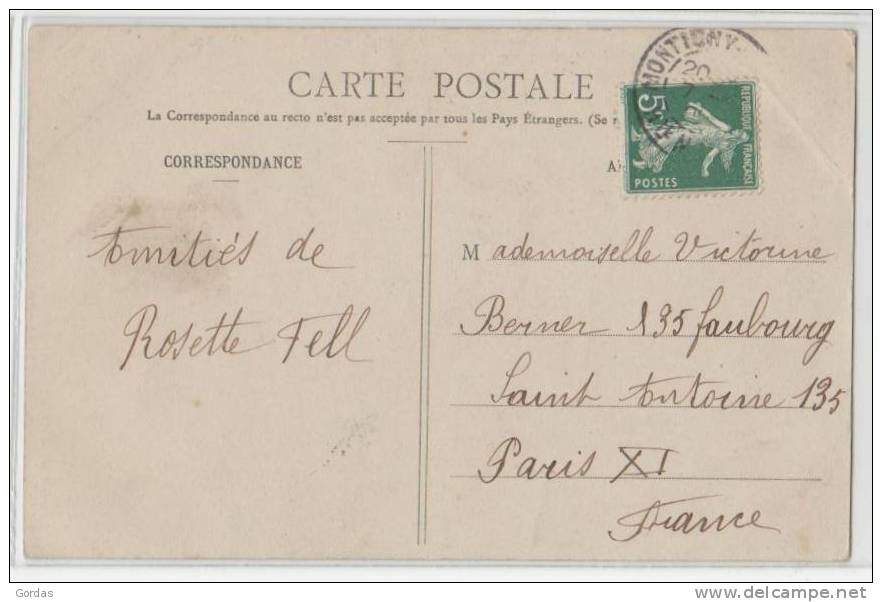 CARTE POSTALE
La Correspondance au recto n'est pas acceptée par tous les Pays Étrangers. (Se r
CORRESPONDANCE
MONTIGNY
20
5c
REPUBLIQUE FRANÇAISE
POSTES
Amitiés de
Rosette Fell
Mademoiselle Victorine
Berner 135 faubourg
Saint Antoine 135
Paris XI
France
Gordas
www.delcampe.net